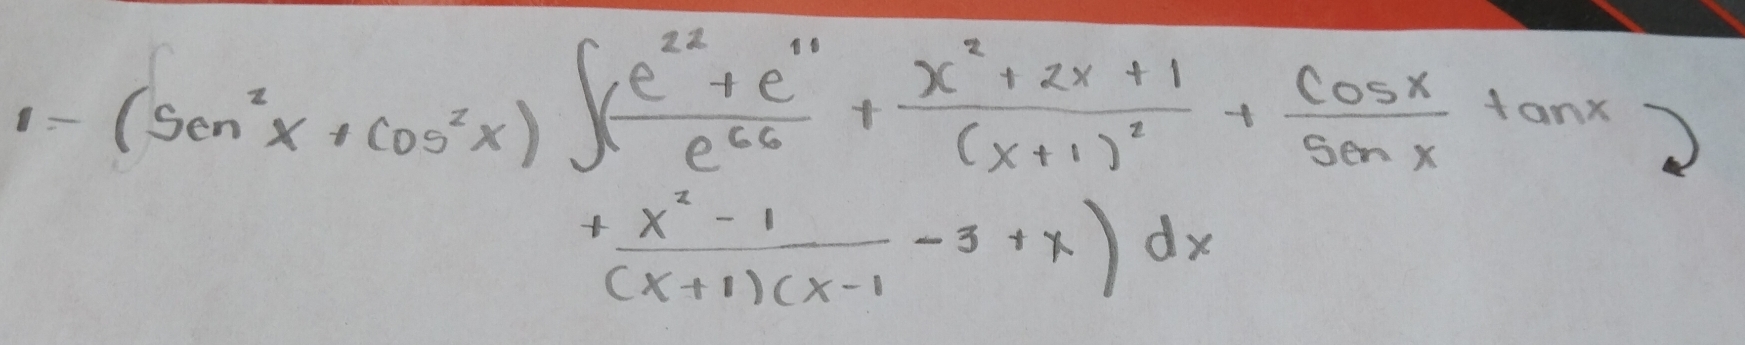 1.- (Sen²x + Cos²x) ∫(e²² + e¹¹ / e⁶⁶ + x² + 2x + 1 / (x+1)² + Cosx / Sen x tanx
+ x² - 1 / (x+1)(x-1 - 3 + x) dx